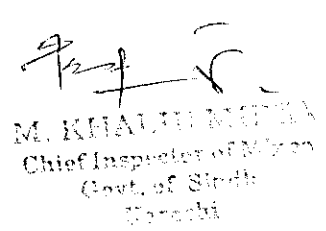 M. KHALID
Chief Inspector of Mines
Govt. of Sindh
Karachi